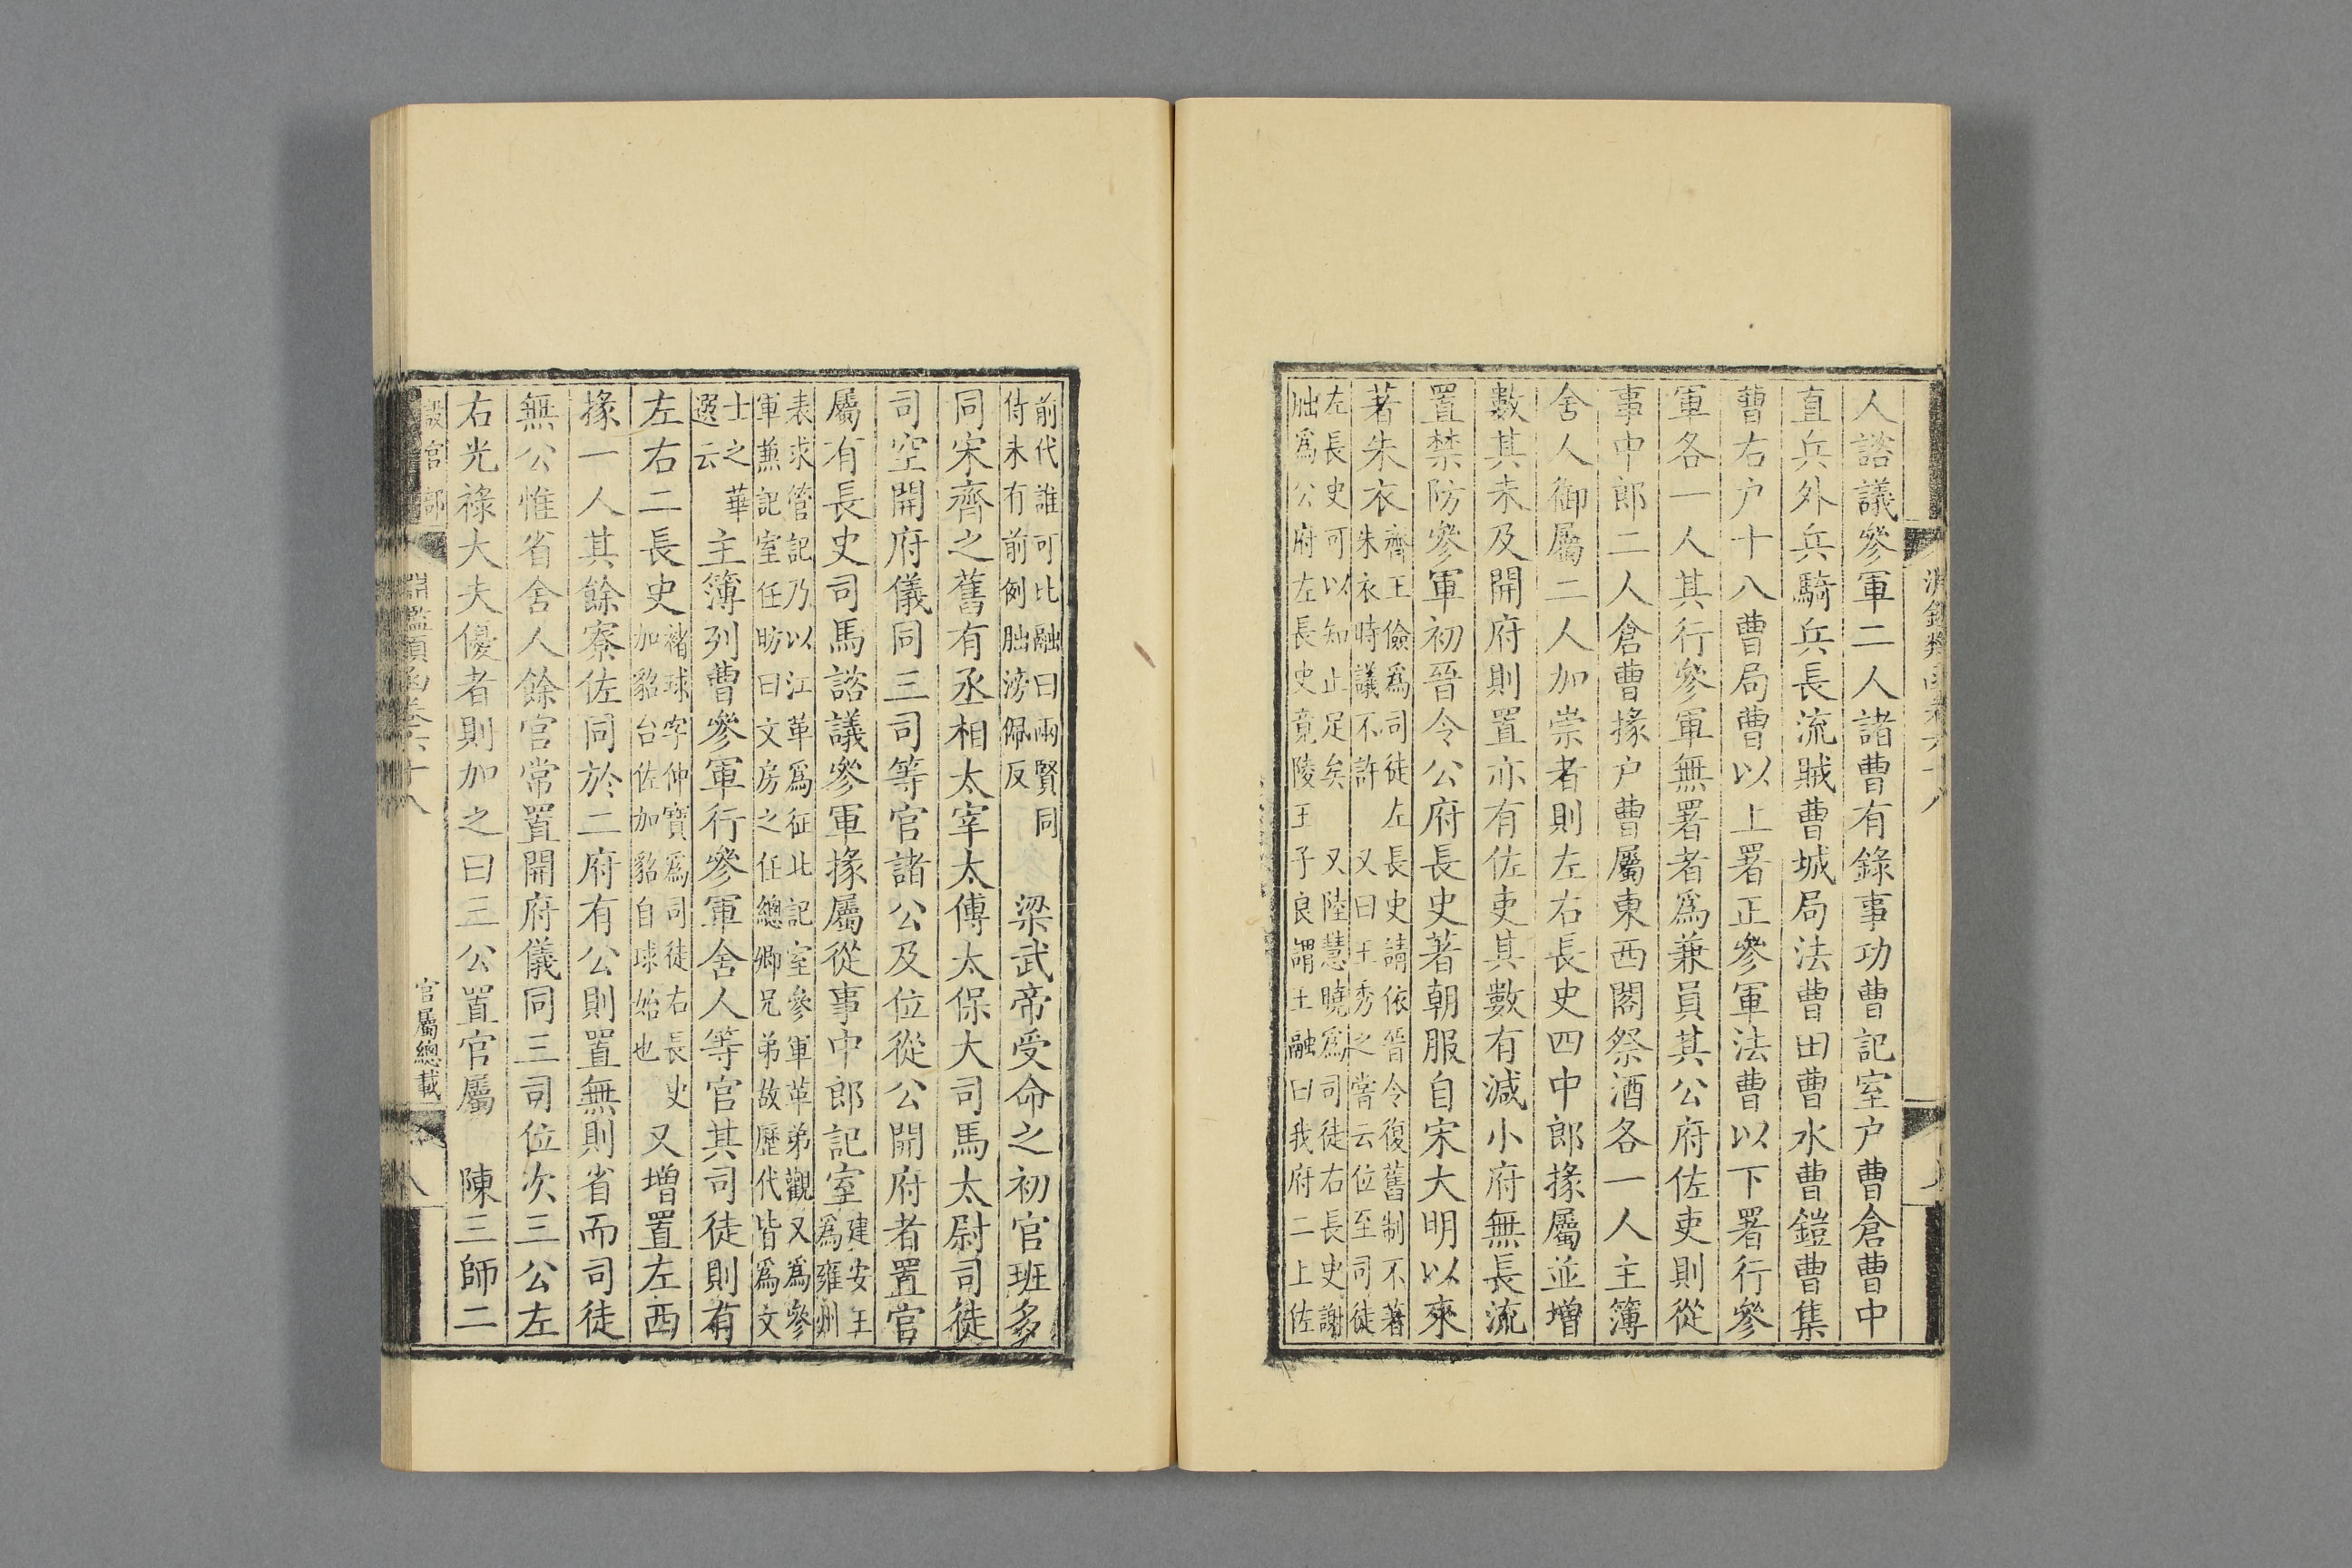 人諮議參軍二人諸曹有錄事功曹記室户曹倉曹中
直兵外兵騎兵長流賊曹城局法曹田曹水曹鎧曹集
曹右户十八曹局曹以上署正參軍法曹以下署行參
軍各一人其行參軍無署者爲兼員其公府佐吏則從
事中郎二人倉曹掾户曹屬東西閣祭酒各一人主簿
舍人御屬二人加崇者則左右長史四中郎掾屬並增
數其未及開府則置亦有佐吏其數有減小府無長流
置禁防參軍初晉令公府長史著朝服自宋大明以來
著朱衣
齊王儉爲司徒左長史請依晉令復舊制不著
朱衣時議不許 又曰王秀之嘗云位至司徒
左長史可以知止足矣 又陸慧曉爲司徒右長史謝
朏爲公府左長史竟陵王子良謂王融曰我府二上佐
前代誰可比融曰兩賢同
侍未有前例朏滂佩反
梁武帝受命之初官班多
同宋齊之舊有丞相太宰太傅太保大司馬太尉司徒
司空開府儀同三司等官諸公及位從公開府者置官
屬有長史司馬諮議參軍掾屬從事中郎記室
建安王
爲雍州
表求管記乃以江革爲征北記室參軍革弟觀又爲參
軍兼記室任昉曰文房之任總卿兄弟故歷代皆爲文
士之華
選云
主簿列曹參軍行參軍舍人等官其司徒則有
左右二長史
褚球字仲寶爲司徒右長史
加貂台佐加貂自球始也
又增置左西
掾一人其餘寮佐同於二府有公則置無則省而司徒
無公惟省舍人餘官常置開府儀同三司位次三公左
右光祿大夫優者則加之曰三公置官屬 陳三師二
設官部
淵鑑類函卷六十八
官屬總載
八